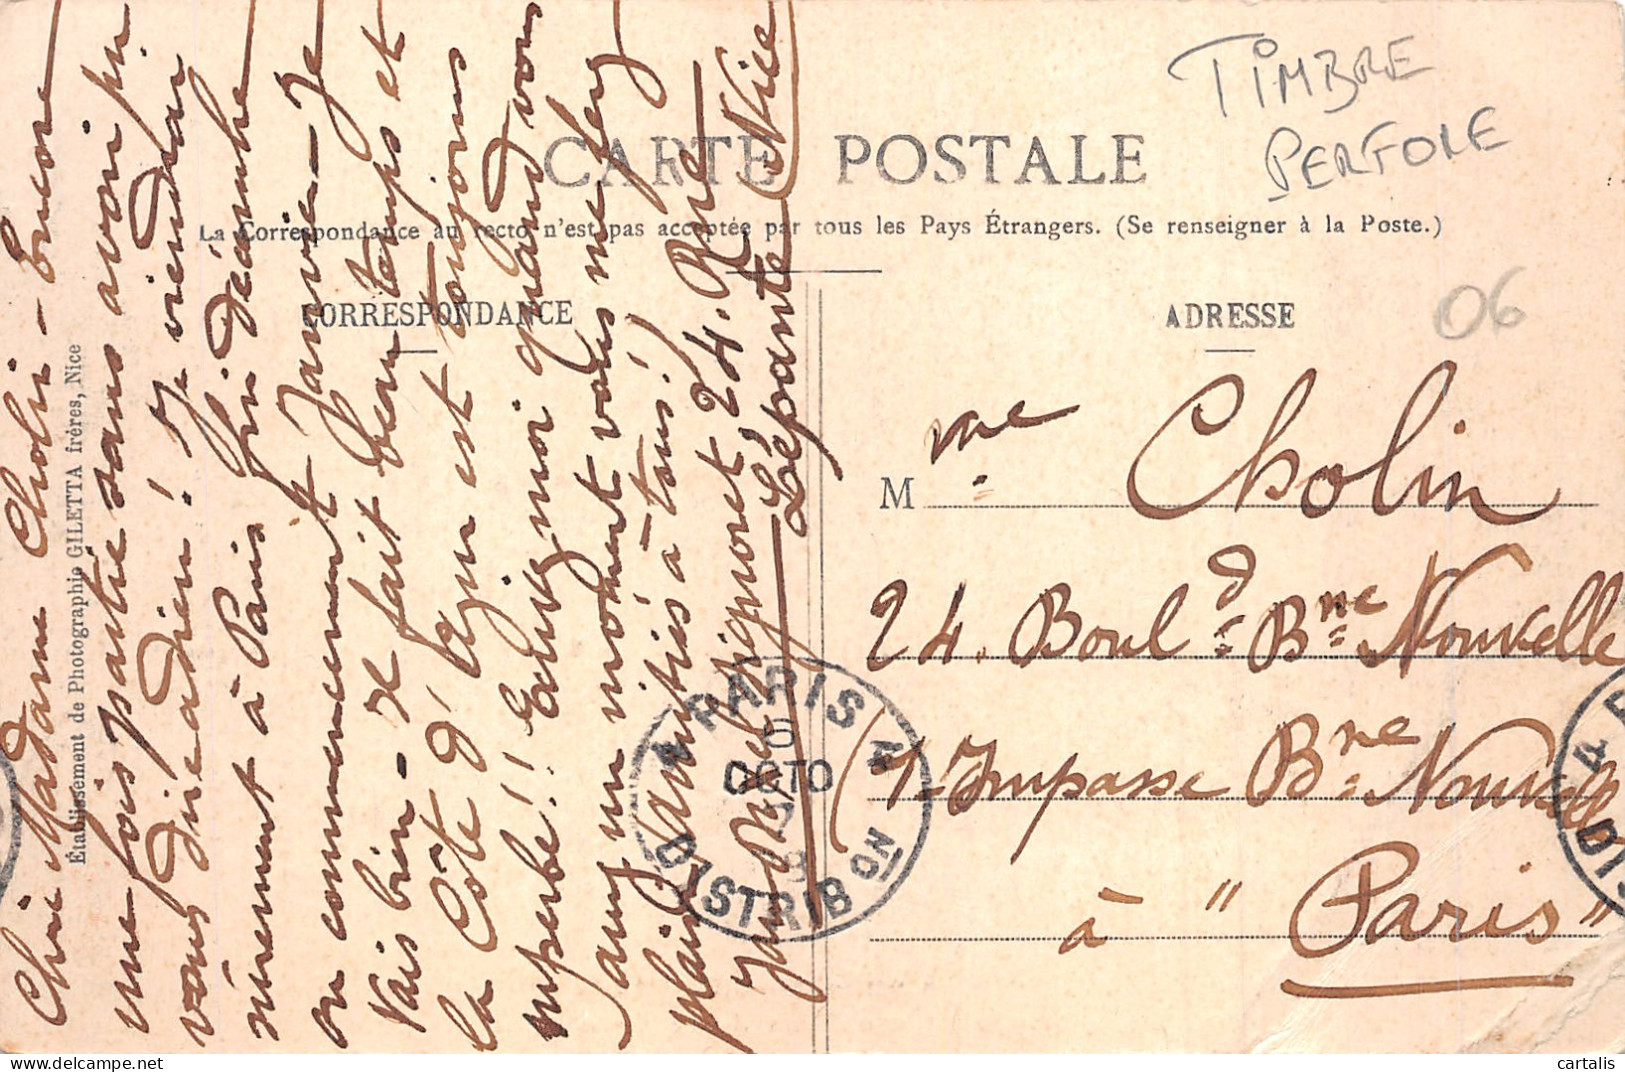 TIMBRE
PERFORE
CARTE POSTALE
La Correspondance au recto n'est pas acceptée par tous les Pays Étrangers. (Se renseigner à la Poste.)
CORRESPONDANCE
ADRESSE
06
Établissement de Photographie GILETTA frères, Nice
Chère Madame Cholin - Encore
une fois partie sans avoir pu
vous dire adieu ! Je viendrai
sûrement à Paris fin décembre
ou commencement Janvier - Je
vais bien - Il fait beau temps et
la Côte d'Azur est toujours
superbe !! Ecrivez moi quand vous
aurez un moment vous me ferez
plaisir Amitiés à tous !
24. Rue
Lépante Nice
Mme Cholin
24. Bould Bne Nouvelle
(7 - Impasse Bne Nouvelle
à " Paris "
PARIS
OCTO
DISTRIBON
PARIS
DIS
cartalis